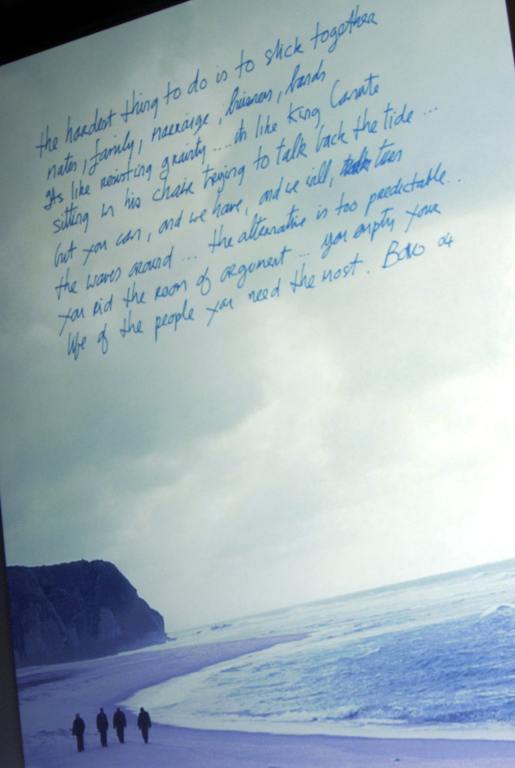 the hardest thing to do is to stick together
mates, family, marraige, business, bands
its like resisting gravity .... its like King Canute
sitting in his chair trying to talk back the tide ...
but you can, and we have, and we will, turn
the waves around ... the alternative is too predictable..
you rid the room of argument ... you empty your
life of the people you need the most. Bono 04